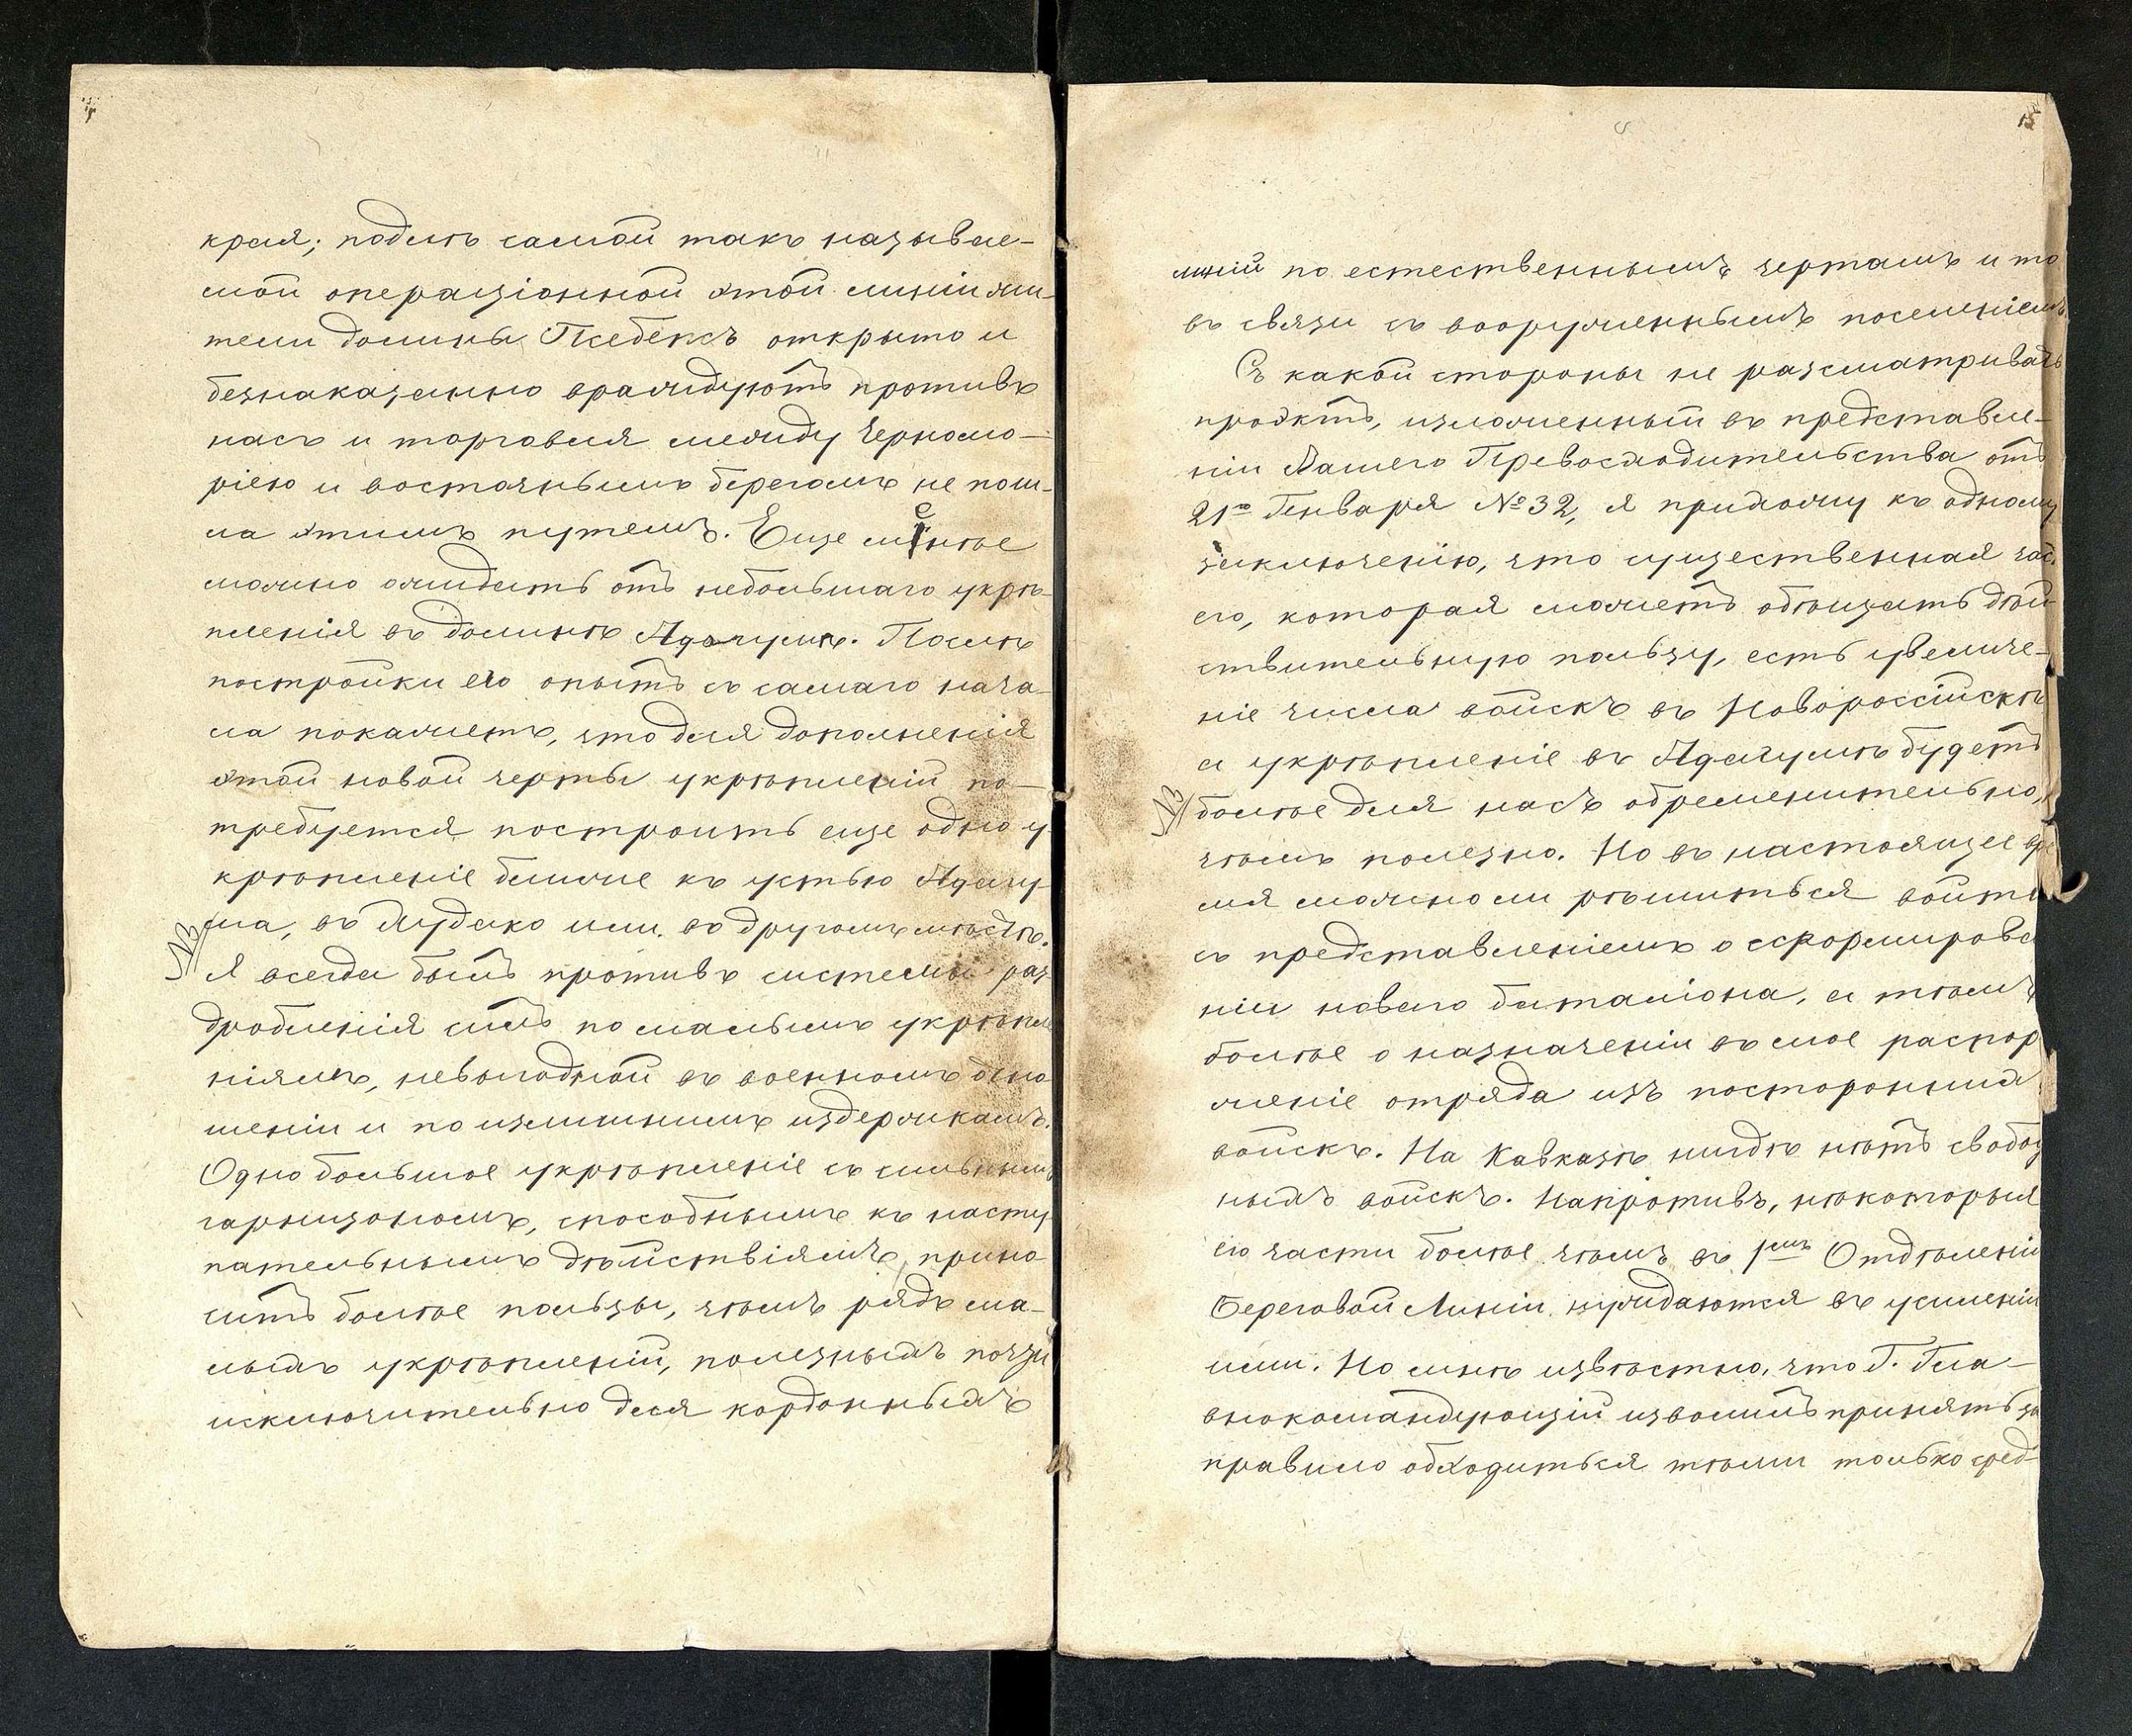 края; подлѣ самой такъ называе-
мой операціонной этой линіи жи-
тели долины Псебексъ открыто и
безнаказанно враждуютъ противъ
насъ и торговля между Черномо-
ріею и восточнымъ берегомъ не пош-
ла этимъ путемъ. Еще менѣе
можно ожидать отъ небольшаго укрѣ-
пленія въ долинѣ Адагумѣ. Послѣ
постройки его опытъ съ самаго нача-
ла покажетъ, что для дополненія
этой новой черты укрѣпленій по-
требуется построить еще одно у-
крѣпленіе ближе къ устью Адагу-
ма, въ Худако или въ другомъ мѣстѣ.
NB
Я всегда былъ противъ системы раз-
дробленія силъ по малымъ укрѣпле
ніямъ, невыгодной въ военномъ отно
шеніи и по излишнимъ издержкамъ.
Одно большое укрѣпленіе съ сильнымъ
гарнизономъ, способнымъ къ насту-
пательнымъ дѣйствіямъ, прино-
ситъ болѣе пользы, чѣмъ рядъ ма-
лыхъ укрѣпленій, полезныхъ почти
исключительно для кордонныхъ
15
линій по естественнымъ чертамъ и то
въ связи съ вооруженнымъ поселеніемъ.
Съ какой стороны не разсматривать
проэктъ, изложенный въ представле-
ніи Вашего Превосходительства отъ
21го Генваря №32, я прихожу къ одному
заключенію, что существенная час.
его, которая можетъ обѣщать дѣй
ствительную пользу, есть увеличе-
ніе числа войскъ въ Новороссійскѣ
а укрѣпленіе въ Адагумѣ будетъ
NB
болѣе для насъ обременительно,
чѣмъ полезно. Но въ настоящее вре
мя можно ли рѣшиться войти
съ представленіемъ о сформирова
ніи новаго баталіона, а тѣмъ
болѣе о назначеніи въ мое распор
женіе отряда изъ постороннихъ
войскъ. На Кавказѣ нигдѣ нѣтъ свобод
ныхъ войскъ. Напротивъ, нѣкоторыя
его части болѣе чѣмъ въ 1мъ Отдѣленіи
Береговой Линіи нуждаются въ усиленіи
ими. Но мнѣ извѣстно, что Г. Гла-
внокомандующій изволилъ принять за
правило обходиться тѣми только сред-